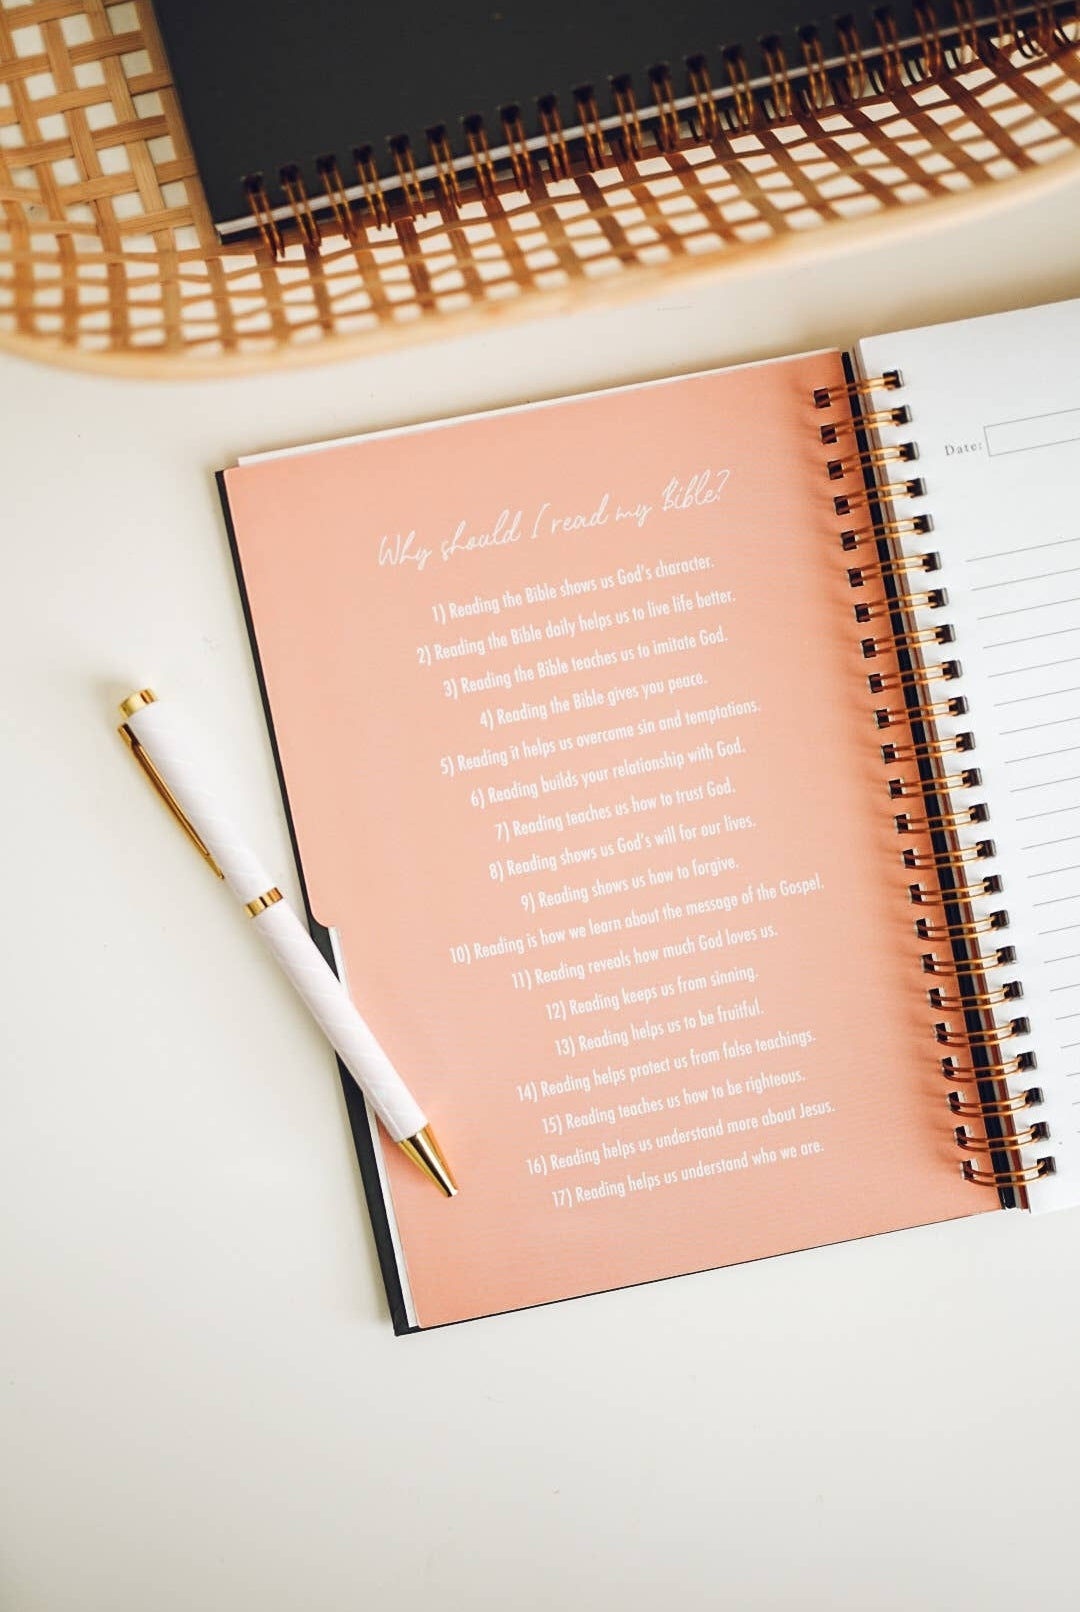 Why should I read my Bible?
1) Reading the Bible shows us God's character.
2) Reading the Bible daily helps us to live life better.
3) Reading the Bible teaches us to imitate God.
4) Reading the Bible gives you peace.
5) Reading it helps us overcome sin and temptations.
6) Reading builds your relationship with God.
7) Reading teaches us how to trust God.
8) Reading shows us God's will for our lives.
9) Reading shows us how to forgive.
10) Reading is how we learn about the message of the Gospel.
11) Reading reveals how much God loves us.
12) Reading keeps us from sinning.
13) Reading helps us to be fruitful.
14) Reading helps protect us from false teachings.
15) Reading teaches us how to be righteous.
16) Reading helps us understand more about Jesus.
17) Reading helps us understand who we are.
Date: